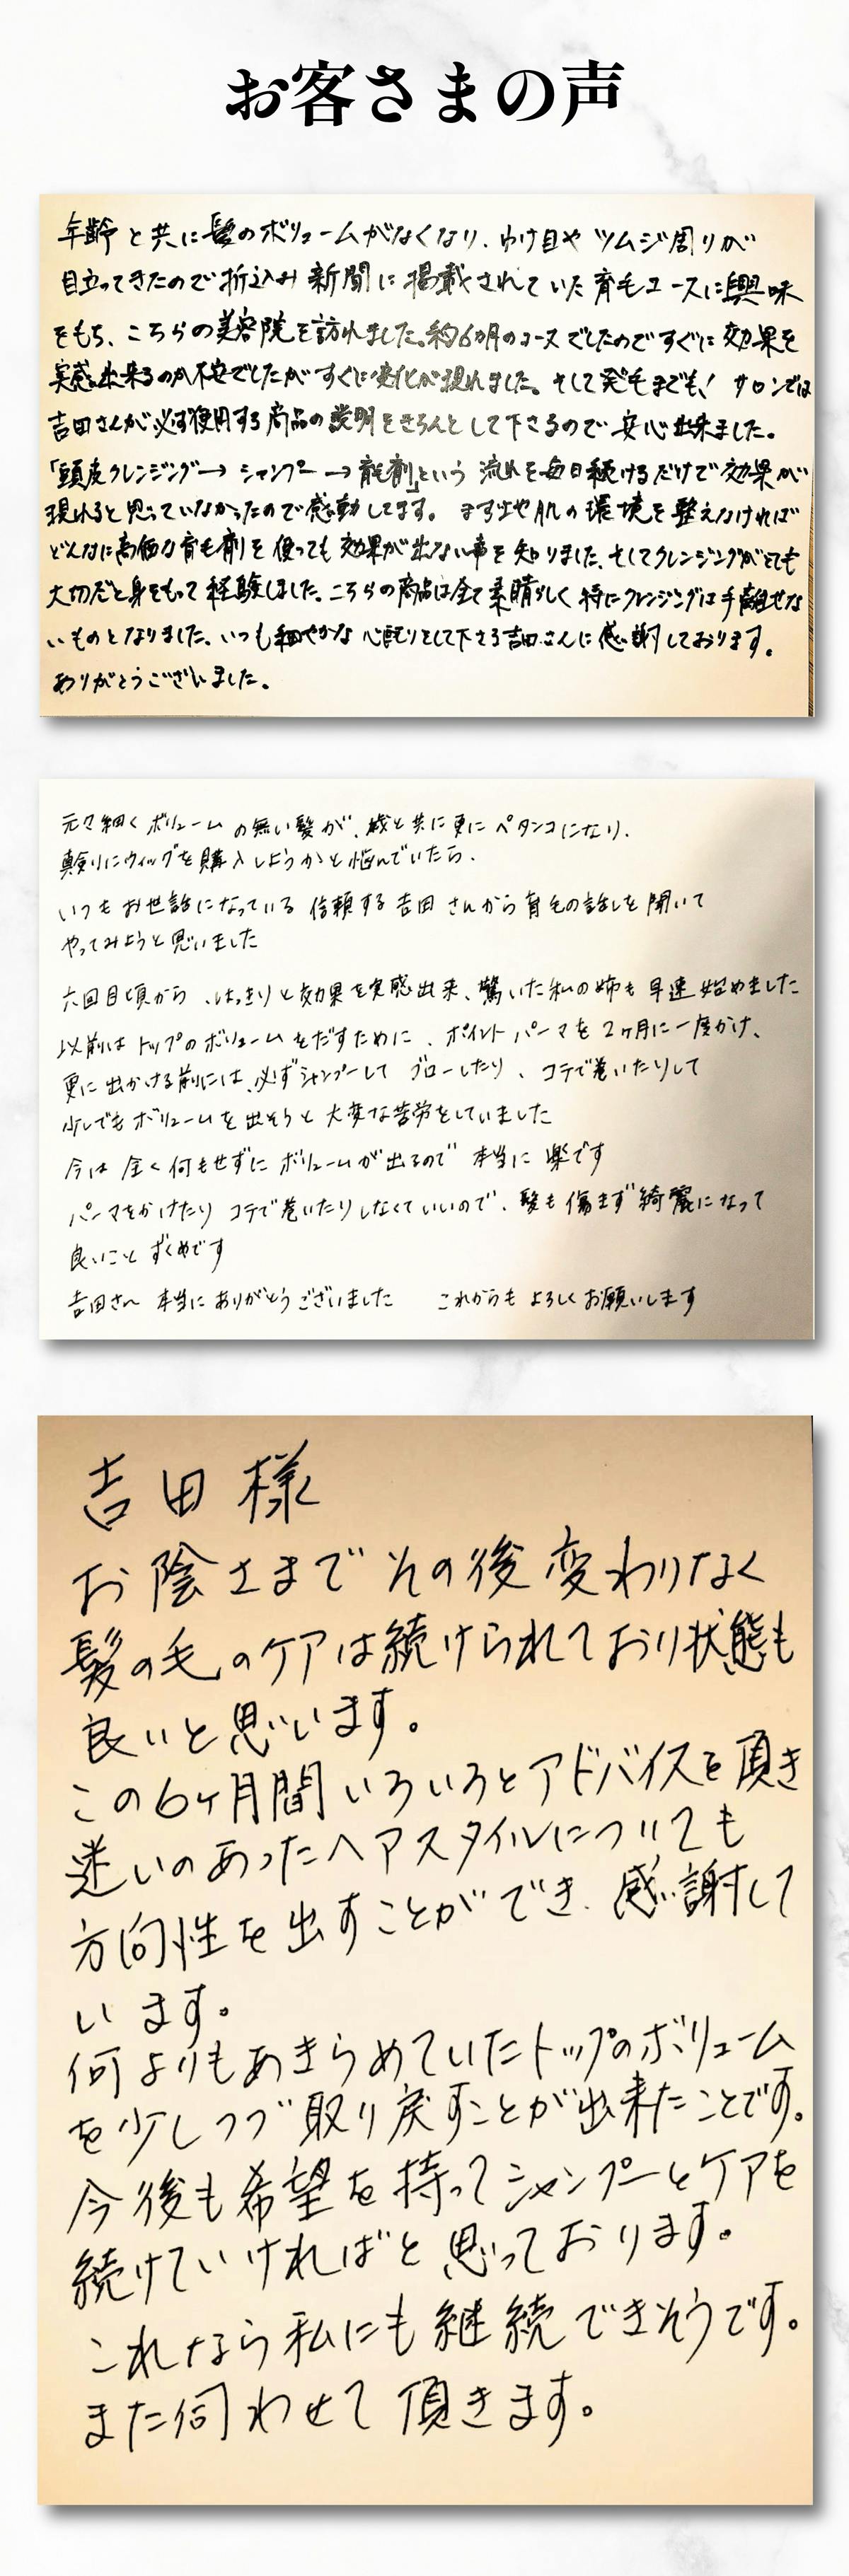 お客さまの声
年齢と共に髪のボリュームがなくなり、わけ目やツムジ周りが
目立ってきたので折込み新聞に掲載されていた育毛コースに興味
をもち、こちらの美容院を訪れました。約6カ月のコースでしたのですぐに効果を
実感出来るのか不安でしたがすぐに変化が現れました。そして発毛までも！サロンでは
吉田さんが必ず使用する商品の説明をきちんとして下さるので安心出来ました。
「頭皮クレンジング→シャンプー→育毛剤」という流れを毎日続けるだけで効果が
現れると思っていなかったので感動してます。まず土や肌の環境を整えなければ
どんなに高価な育毛剤を使っても効果が出ない事を知りました、そしてクレンジングがとても
大切だと身をもって経験しました、こちらの商品は全て素晴らしく特にクレンジングは手離せな
いものとなりました、いつも細やかな心配りをして下さる吉田さんに感謝しております。
ありがとうございました。
元々細くボリュームの無い髪が、歳と共に更にペタンコになり、
真剣にウィッグを購入しようかと悩んでいたら、
いつもお世話になっている信頼する吉田さんから育毛の話しを聞いて
やってみようと思いました
六回目頃から、はっきりと効果を実感出来、驚いた私の姉も早速始めました
以前はトップのボリュームをだすために、ポイントパーマを2ヶ月に一度かけ、
更に出かける前には、必ずシャンプーしてブローしたり、コテで巻いたりして
少しでもボリュームを出そうと大変な苦労をしていました
今は全く何もせずにボリュームが出るので本当に楽です
パーマをかけたりコテで巻いたりしなくていいので、髪も傷まず綺麗になって
良いことずくめです
吉田さん本当にありがとうございました これからもよろしくお願いします
吉田様
お陰さまでその後変わりなく
髪の毛のケアは続けられており状態も
良いと思います。
この6ヶ月間いろいろとアドバイスを頂き
迷いのあったヘアスタイルについても
方向性を出すことができ、感謝して
います。
何よりもあきらめていたトップのボリューム
を少しつづ取り戻すことが出来たことです。
今後も希望を持ってシャンプーとケアを
続けていければと思っております。
これなら私にも継続できそうです。
また伺わせて頂きます。